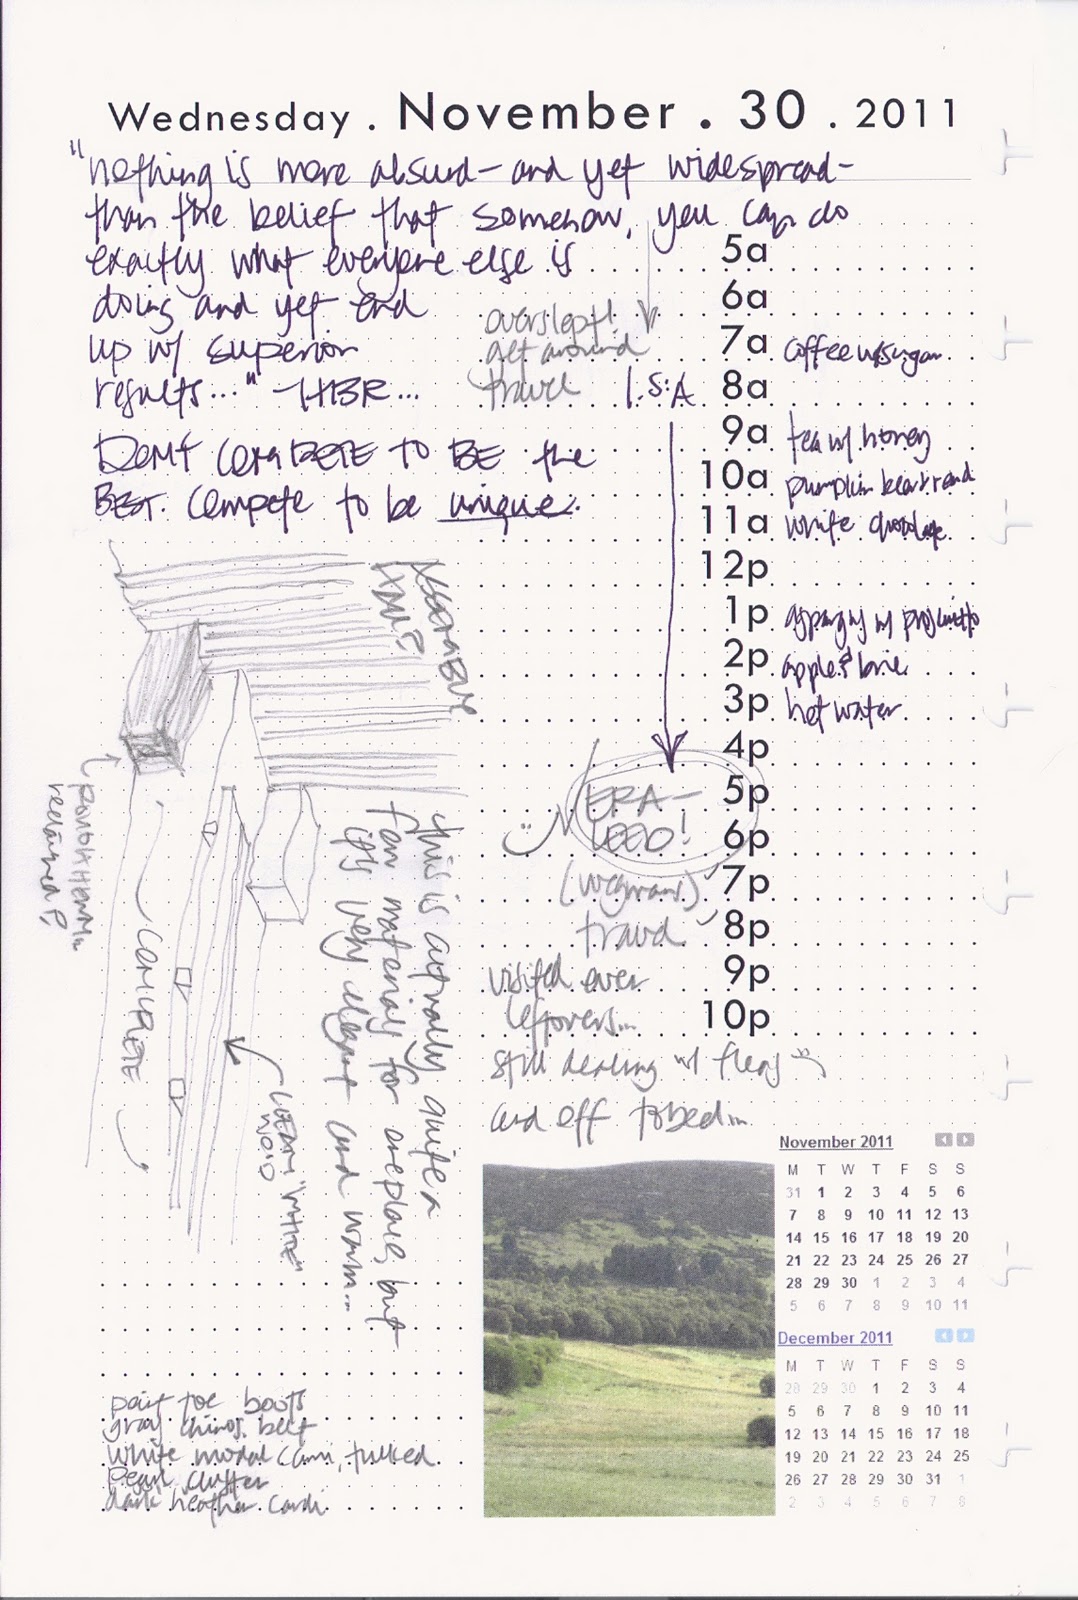 Wednesday . November . 30 . 2011
"nothing is more absurd - and yet widespread -
than the belief that somehow, you can do
exactly what everyone else is
doing and yet end
up w/ superior
results..." - HBR...
DON'T COMPETE TO BE the
BEST. Compete to be unique.
overslept!
get around
travel
I.S.A
5a
6a
7a coffee w/sugar
8a
9a tea w/ honey
10a pumpkin bread
11a white chocolate
12p
1p asparagus w/ prosciutto
2p apple & brie
3p hot water
4p
5p
6p
7p
8p
9p
10p
(wegmans)
travel
visited over
leftovers...
still dealing w/
and off to bed...
XMU?
reclaimed?
CONCRETE
"WHITE"
this is actually quite a
few materials for one place, but
it's very elegant and warm...
boots
gray chinos. belt
white modal cami, tucked
pearl cluster
dark heather cardi
November 2011
M T W T F S S
31 1 2 3 4 5 6
7 8 9 10 11 12 13
14 15 16 17 18 19 20
21 22 23 24 25 26 27
28 29 30 1 2 3 4
5 6 7 8 9 10 11
December 2011
M T W T F S S
28 29 30 1 2 3 4
5 6 7 8 9 10 11
12 13 14 15 16 17 18
19 20 21 22 23 24 25
26 27 28 29 30 31 1
2 3 4 5 6 7 8